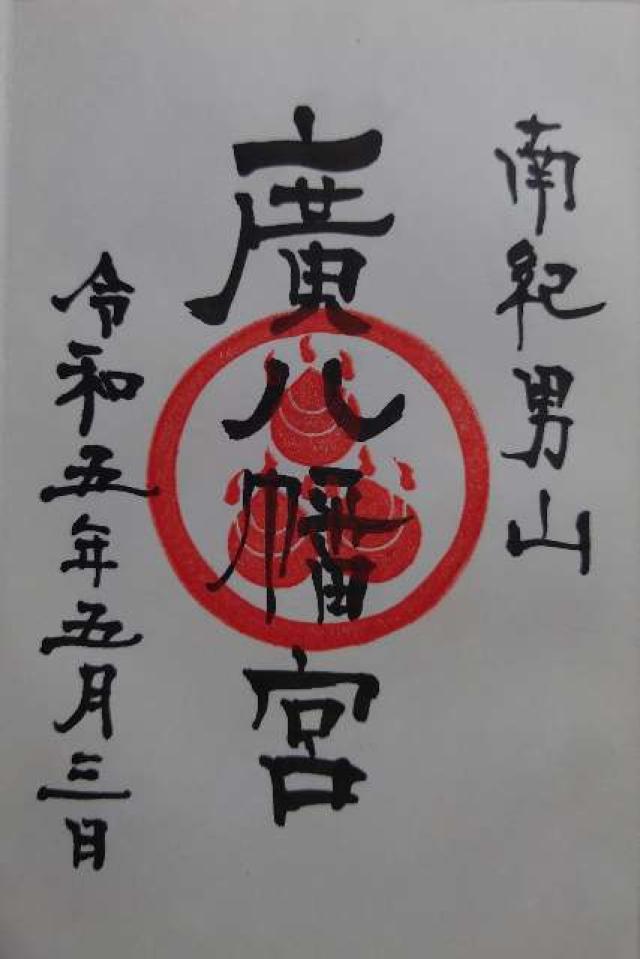 南紀男山
廣八幡宮
令和五年五月三日